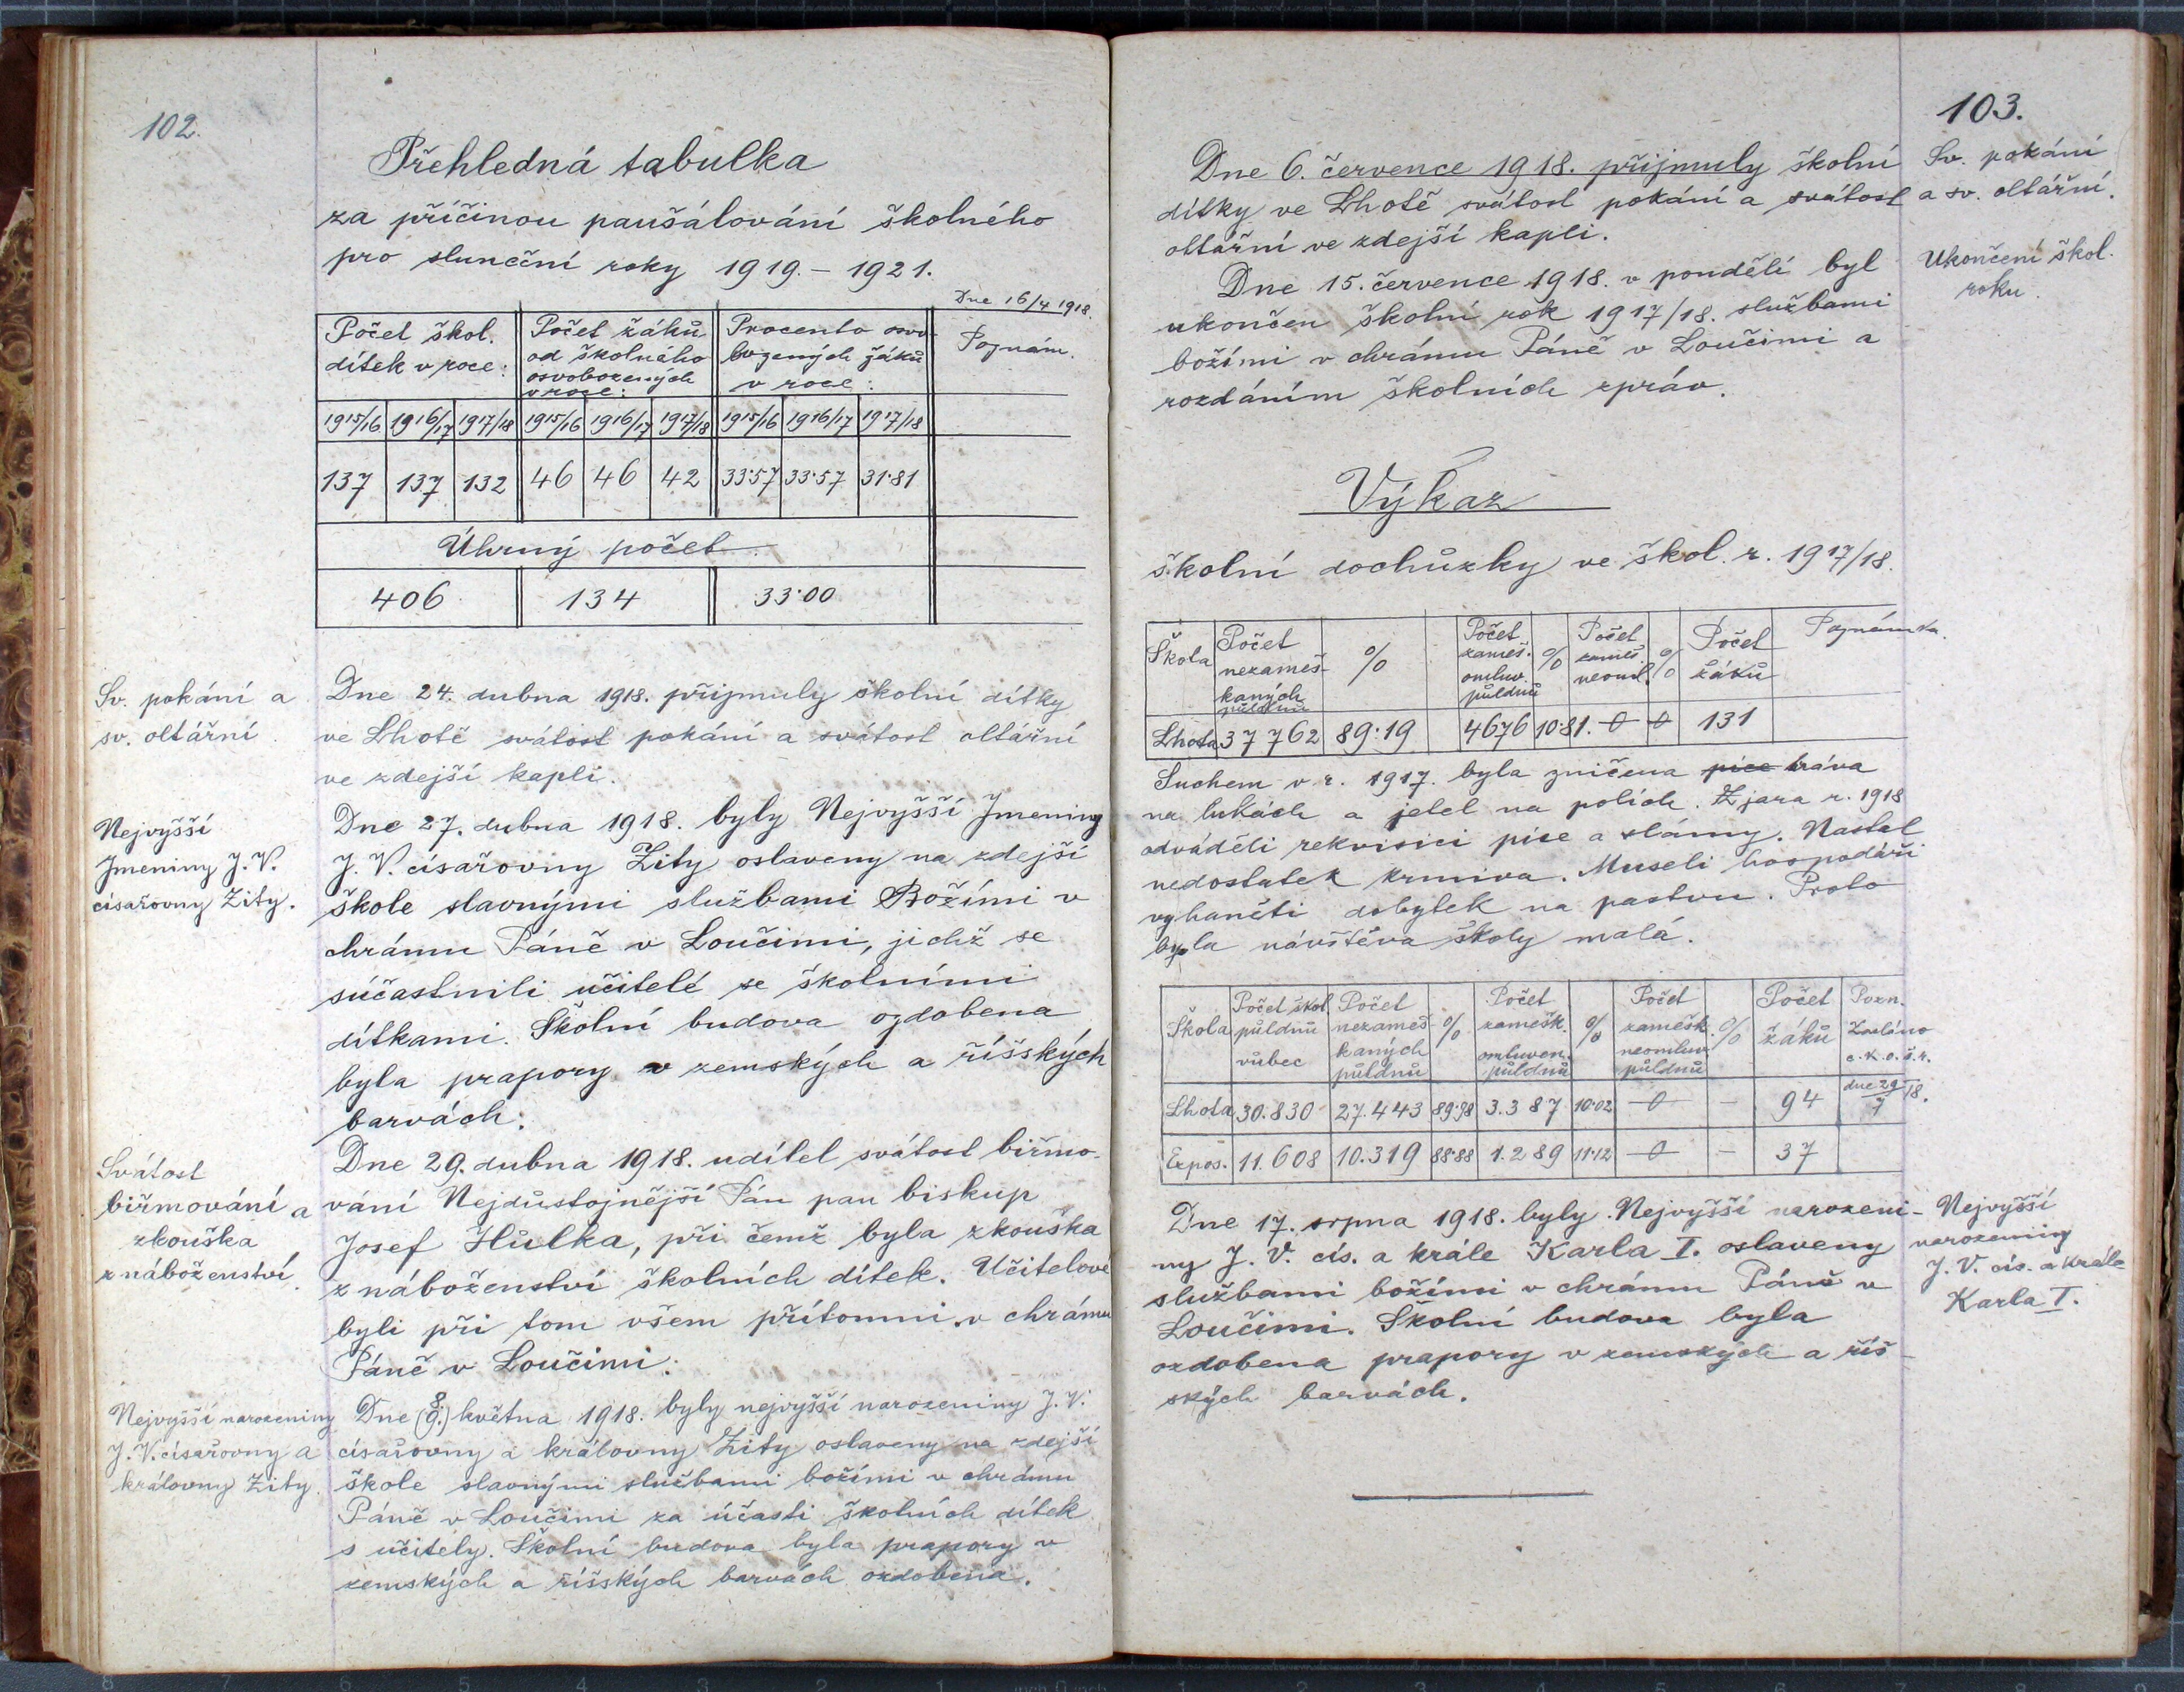 102.
Přehledná tabulka
za příčinou paušálování školného
pro sluneční roky 1919. – 1921.
Dne 16/4 1918.
Počet škol. dítek v roce: Počet žáků od školného osvobozených v roce: Procento osvobozených žáků v roce: Poznám.
1915/16 1916/17 1917/18 1915/16 1916/17 1917/18 1915/16 1916/17 1917/18
137 137 132 46 46 42 33·57 33·57 31·81
Úhrný počet
406 134 33·00
Sv. pokání a
sv. oltářní.
Dne 24. dubna 1918. přijmuly školní dítky
ve Lhotě svátost pokání a svátost oltářní
ve zdejší kapli.
Nejvyšší
Jmeniny J. V.
císařovny Zity.
Dne 27. dubna 1918. byly Nejvyšší Jmeniny
J. V. císařovny Zity oslaveny na zdejší
škole slavnými službami Božími v
chrámu Páně v Loučimi, jichž se
súčastnili učitelé se školními
dítkami. Školní budova ozdobena
byla prapory v zemských a říšských
barvách.
Svátost
biřmování a
zkouška
z náboženství.
Dne 29. dubna 1918. udílel svátost biřmo-
vání Nejdůstojnější Pán pan biskup
Josef Hůlka, při čemž byla zkouška
z náboženství školních dítek. Učitelové
byli při tom všem přítomni v chrámu
Páně v Loučimi.
Nejvyšší narozeniny
J. V. císařovny a
královny Zity.
Dne (9.) 8. května 1918. byly nejvyšší narozeniny J. V.
císařovny a královny Zity oslaveny na zdejší
škole slavnými službami božími v chrámu
Páně v Loučimi za účasti školních dítek
s učitely. Školní budova byla prapory v
zemských a říšských barvách ozdobena.
103.
Dne 6. července 1918. přijmuly školní
dítky ve Lhotě svátost pokání a svátost
oltářní ve zdejší kapli.
Sv. pokání
a sv. oltářní.
Dne 15. července 1918. v pondělí byl
ukončen školní rok 1917/18. službami
božími v chrámu Páně v Loučimi a
rozdáním školních zpráv.
Ukončení škol.
roku.
Výkaz
školní docházky ve škol. r. 1917/18.
Škola Počet nezameškaných půldnů % Počet zameš. omluv. půldnů % Počet zameš. neoml. % Počet žáků Poznámka.
Lhota 37 762 89·19 4676 10·81. 0 0 131
Suchem v r. 1917. byla zničena píce tráva
na lukách a jetel na polích. Z jara r. 1918
odváděli rekvisici píce a slámy. Nastal
nedostatek krmiva. Museli hospodáři
vyháněti dobytek na pastvu. Proto
byla návštěva školy malá.
Škola Počet škol. půldnů vůbec Počet nezameškaných půldnů % Počet zamešk. omluven. půldnů % Počet zamešk. neomluv. půldnů % Počet žáků Pozn. Zasláno c. k. o. š. r.
Lhota 30.830 27.443 89·98 3.387 10·02 0 – 94 dne 29/7 18.
Expos. 11.608 10.319 88·88 1.289 11·12 0 – 37
Dne 17. srpna 1918. byly Nejvyšší narozeni-
ny J. V. cís. a krále Karla I. oslaveny
službami božími v chrámu Páně v
Loučimi. Školní budova byla
ozdobena prapory v zemských a říš-
ských barvách.
Nejvyšší
narozeniny
J. V. cís. a krále
Karla I.